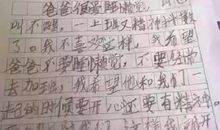 爸爸很爱睡觉,
叫不醒,一上班又精神抖擞
了。我不喜欢这样,我希望
爸爸不要睡懒觉,不要经常
去加班,我希望他和我们一
起的时候要开心还要有精神。